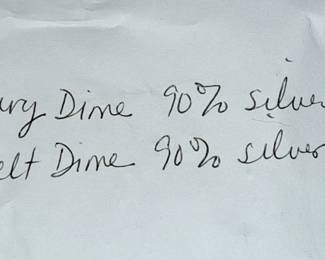 ury Dime 90% silver
elt Dime 90% silver